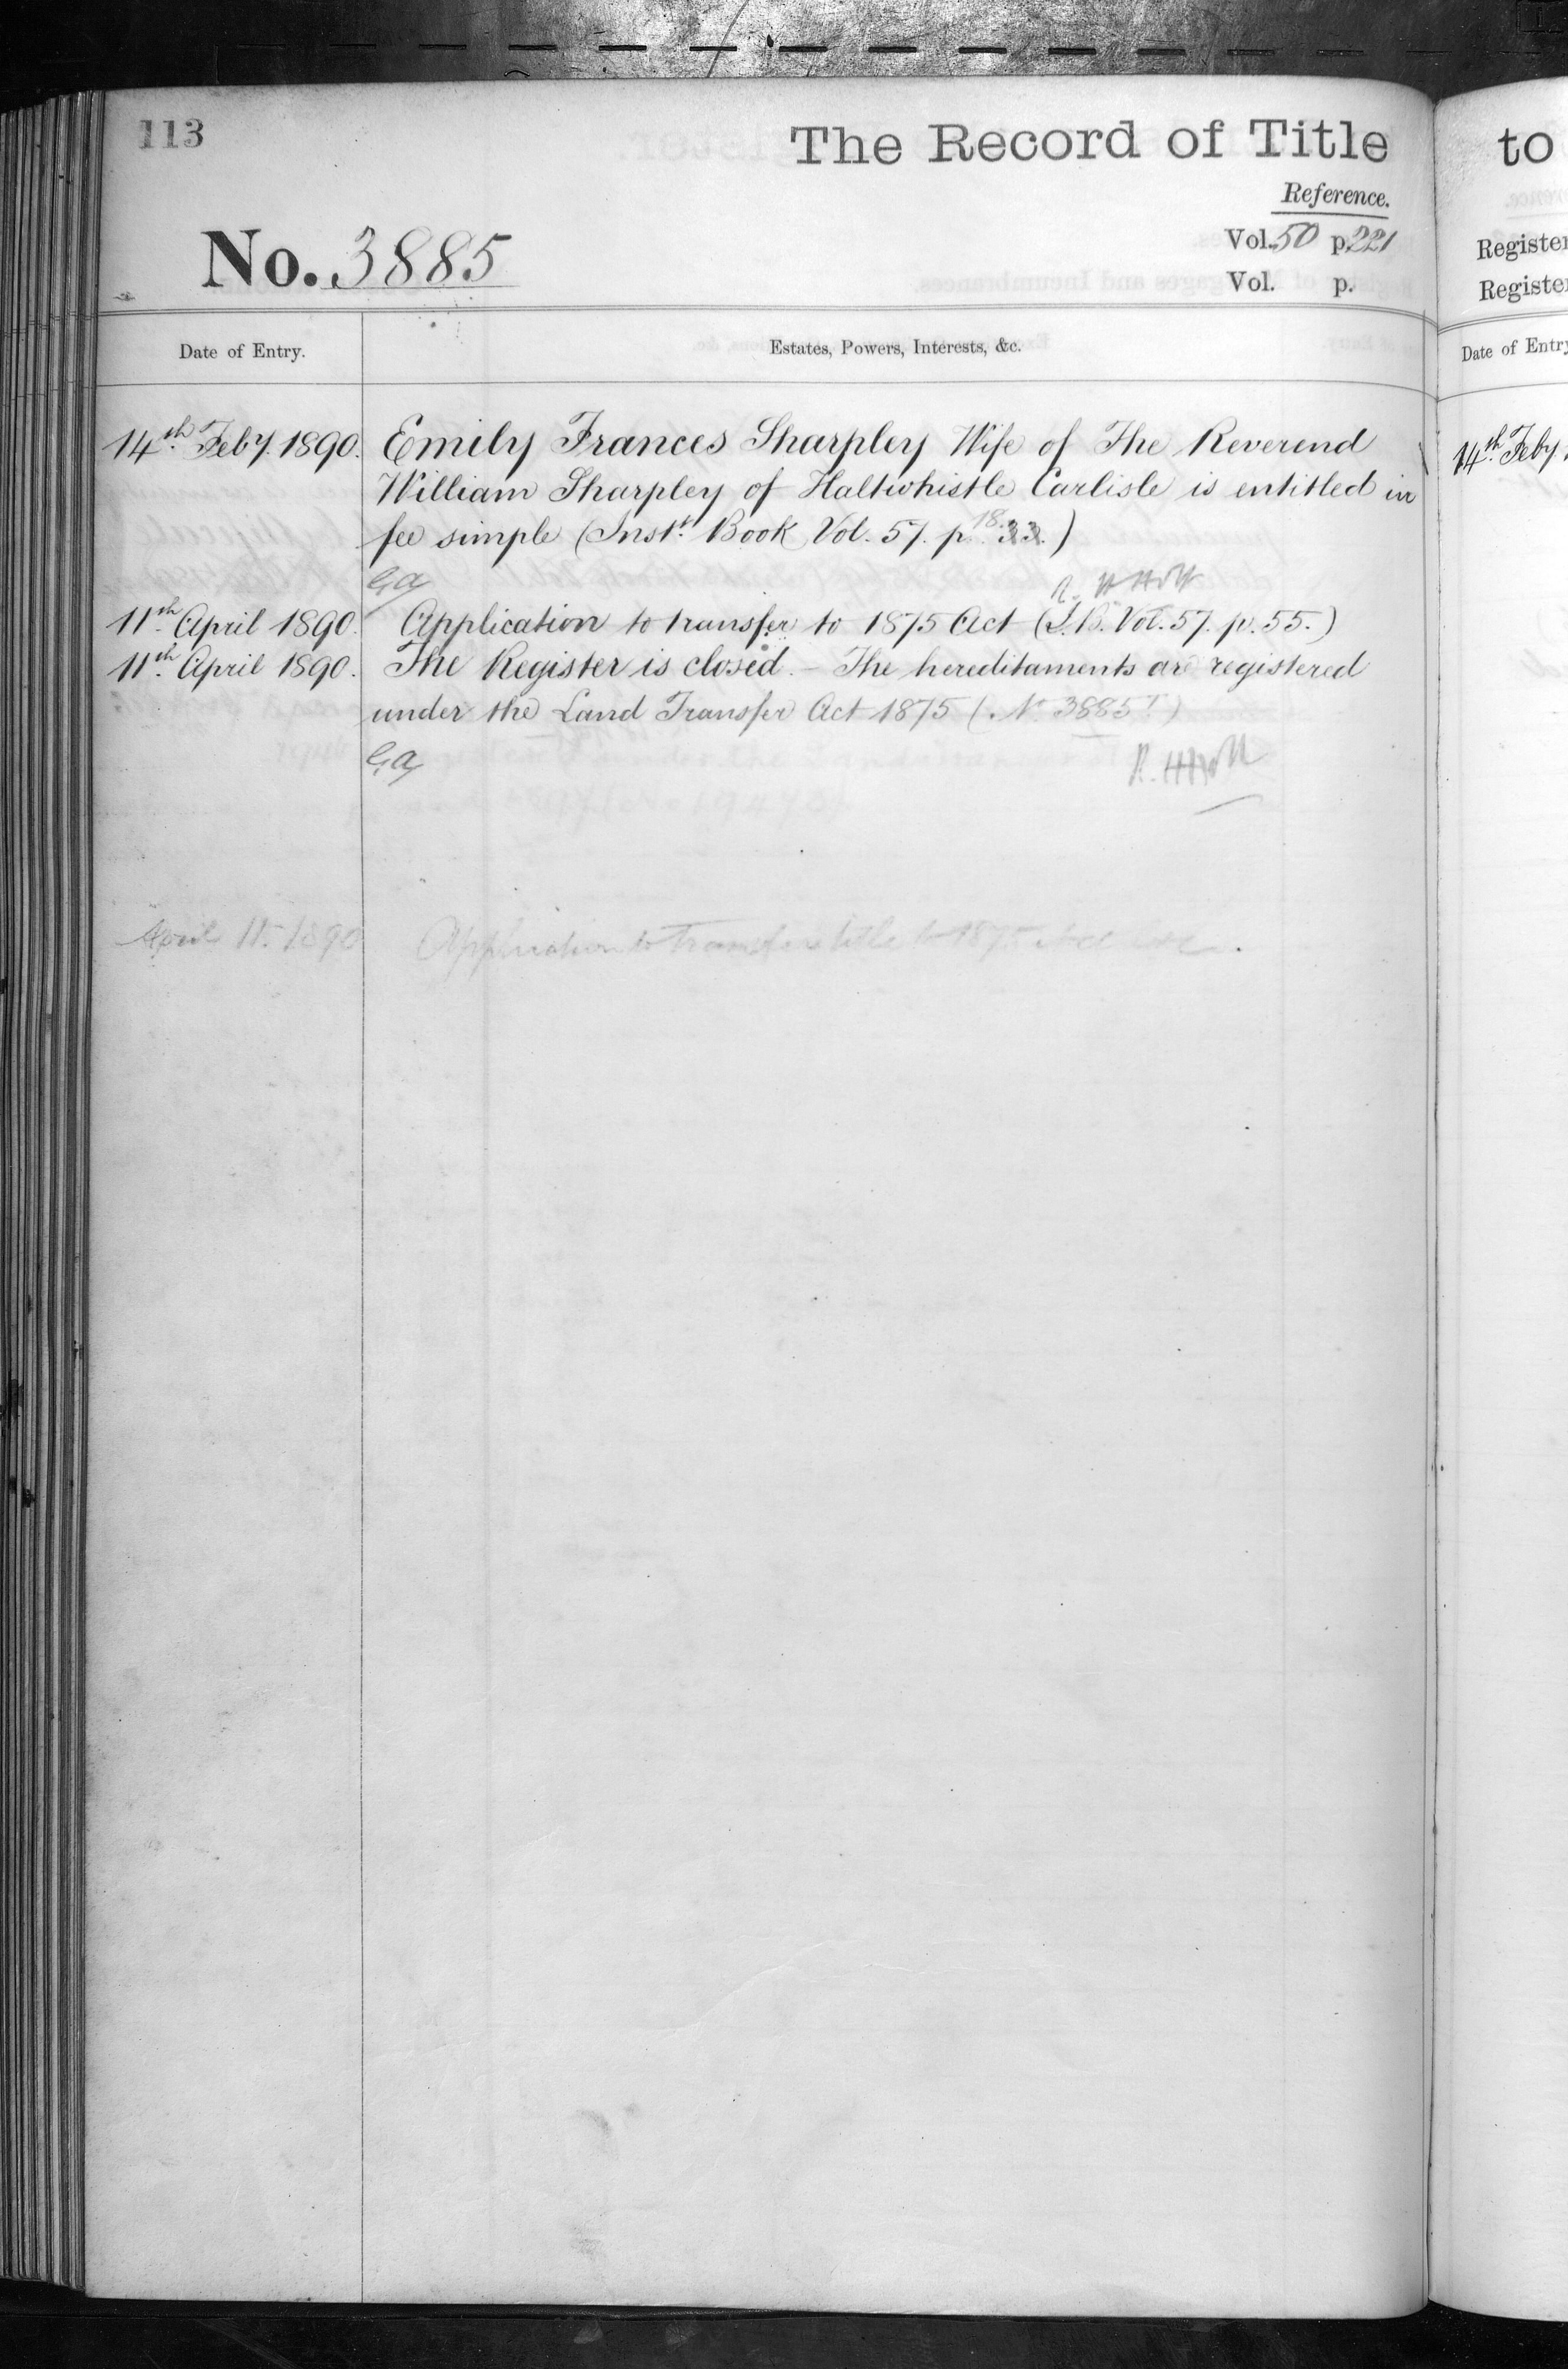 113
The Record of Title
Reference.
No. 3885
Vol. 50 p. 221
Vol. p.
Date of Entry.
Estates, Powers, Interests, &c.
14th Feby. 1890. Emily Frances Sharpley Wife of The Reverend
William Sharpley of Haltwhistle Carlisle is entitled in
fee simple (Inst. Book Vol. 57. p. 18. 33.)
11th April 1890. Application to transfer to 1875 Act (I.B. Vol. 57. p. 55.)
11th April 1890. The Register is closed. - The hereditaments are registered
under the Land Transfer Act 1875 (. No. 3885T)
April 11. 1890 Application to transfer title to 1875 Act
to
Register
Register
Date of Entry
14th Feby